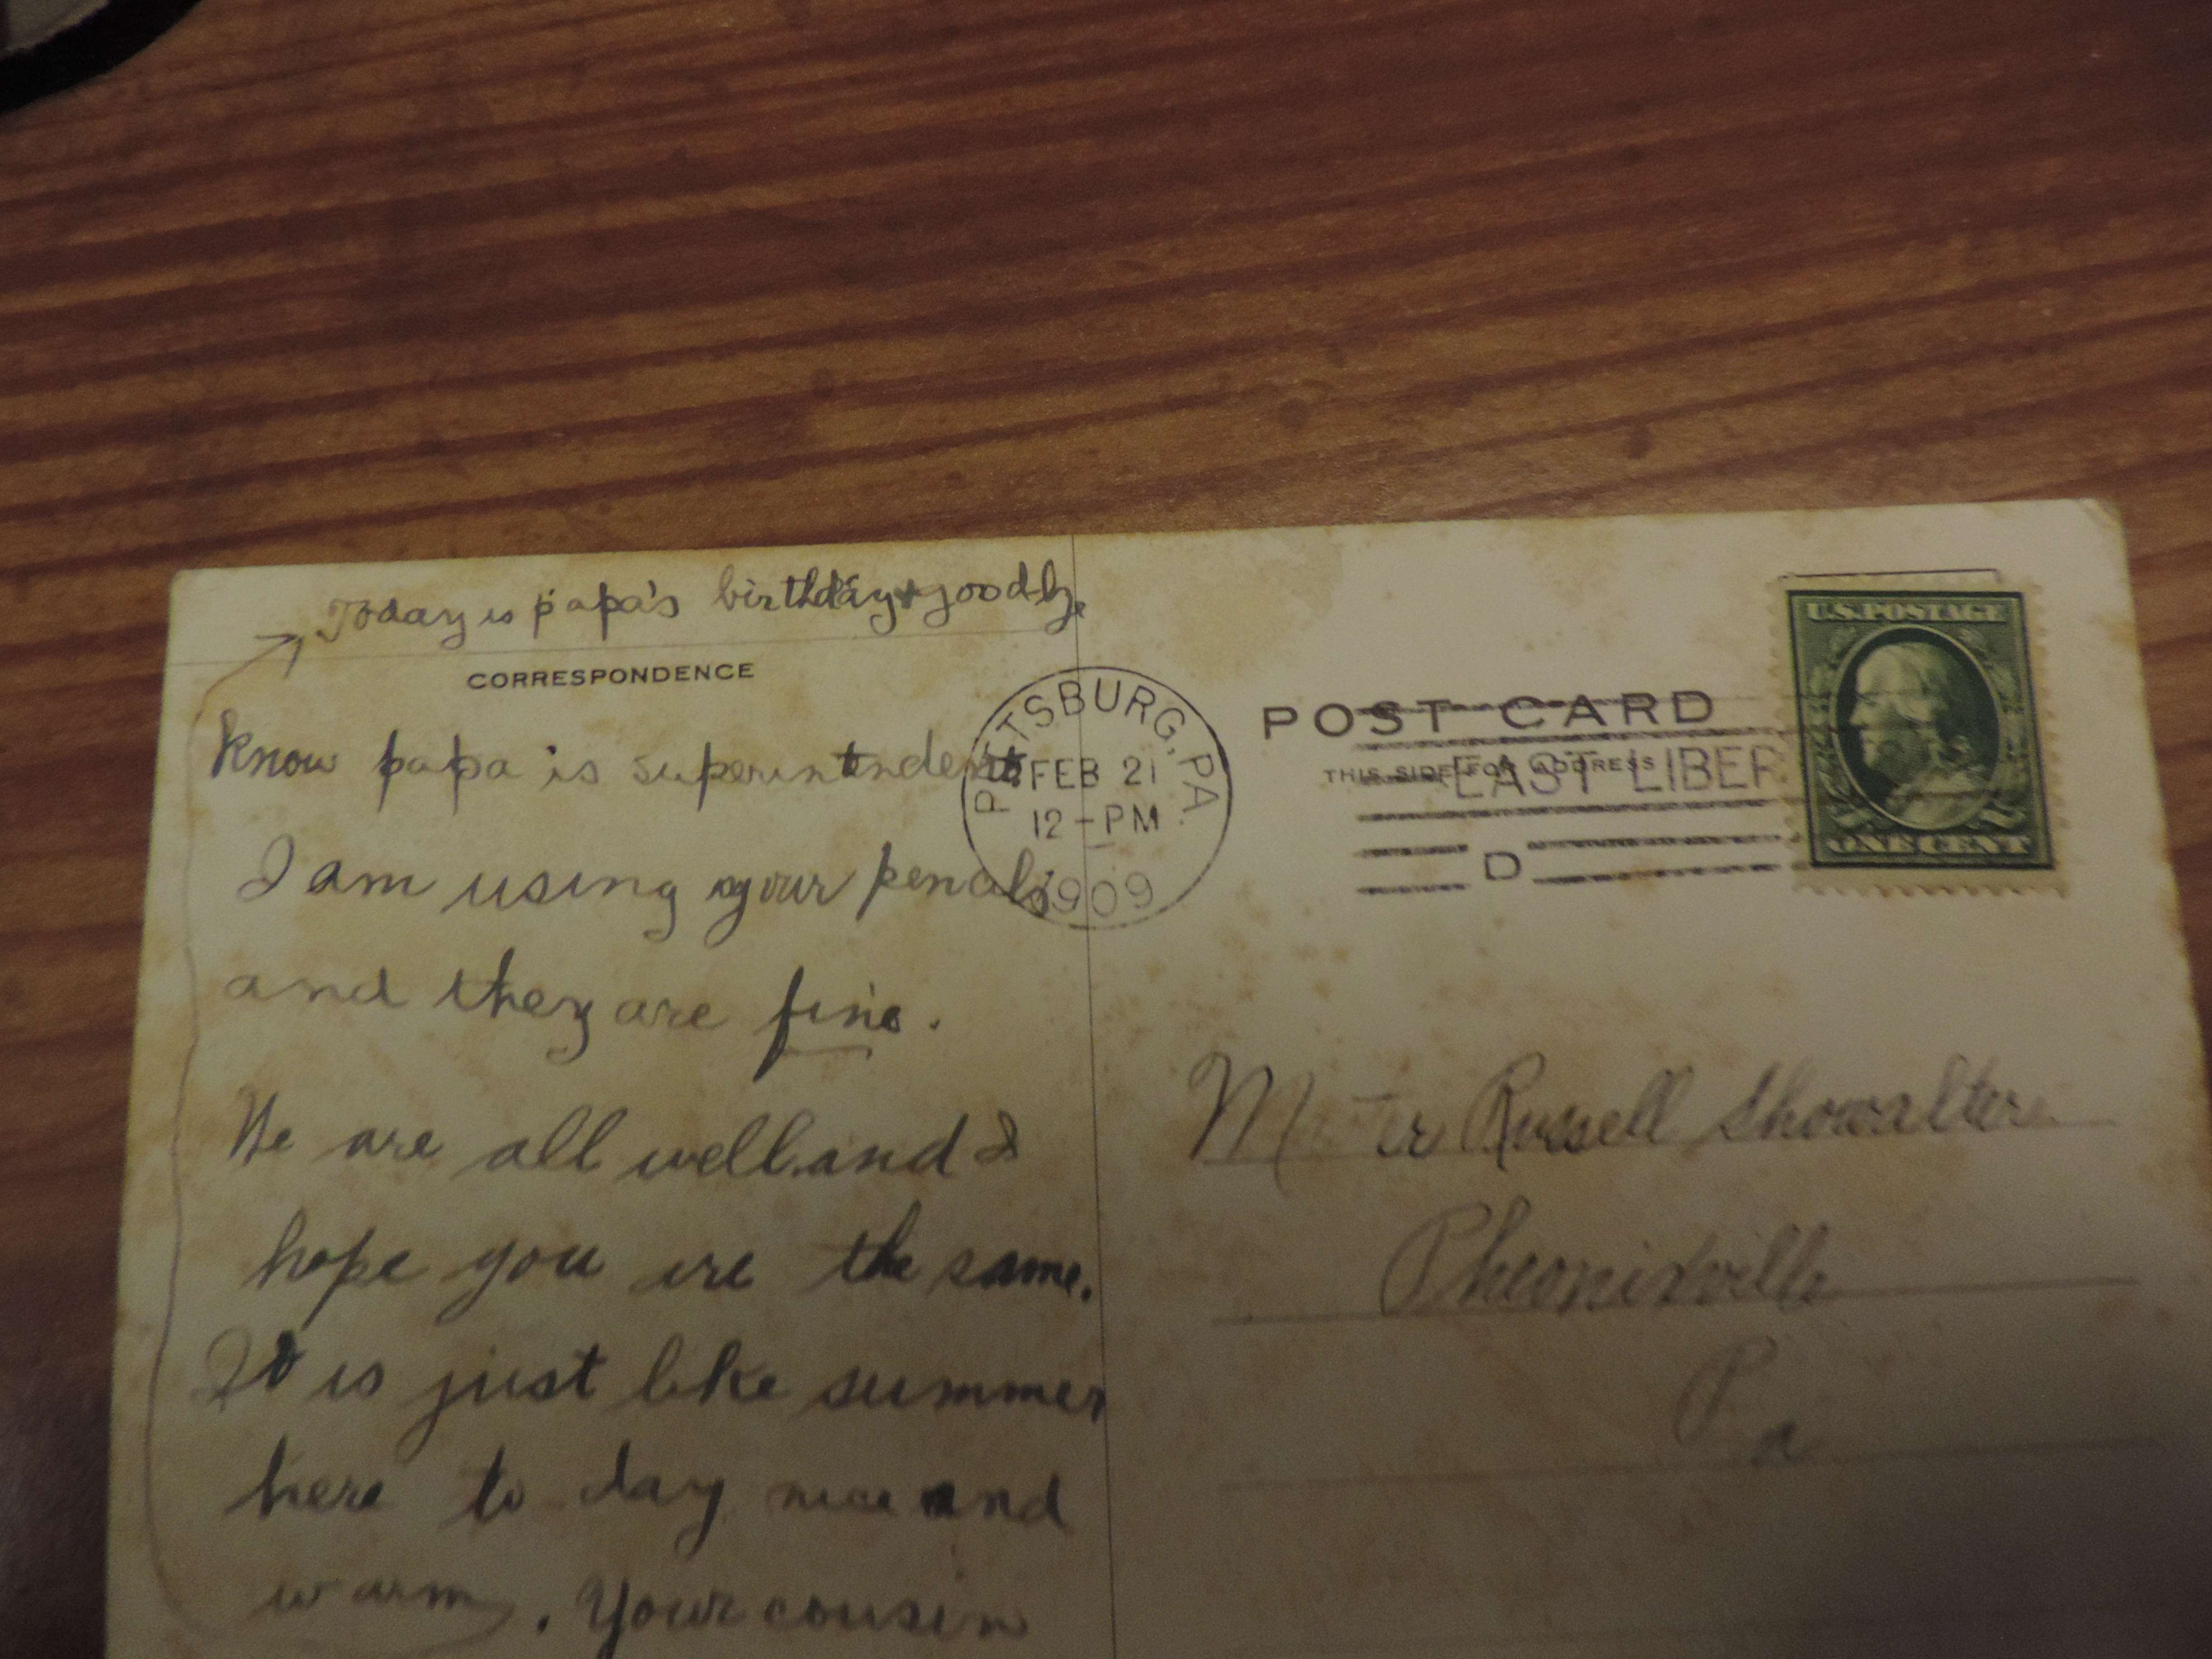 Today is papa's birthday + goodby
CORRESPONDENCE
know papa is superintendent
I am using your pencils
and they are fine.
We are all well and I
hope you are the same.
It is just like summer
here to-day nice and
warm. Your cousin
PITTSBURG, PA.
FEB 21
12-PM
1909
POST CARD
THIS SIDE FOR ADDRESS
EAST LIBER
D
U.S. POSTAGE
ONE CENT
Russell Showalter
Pheonixville
Pa